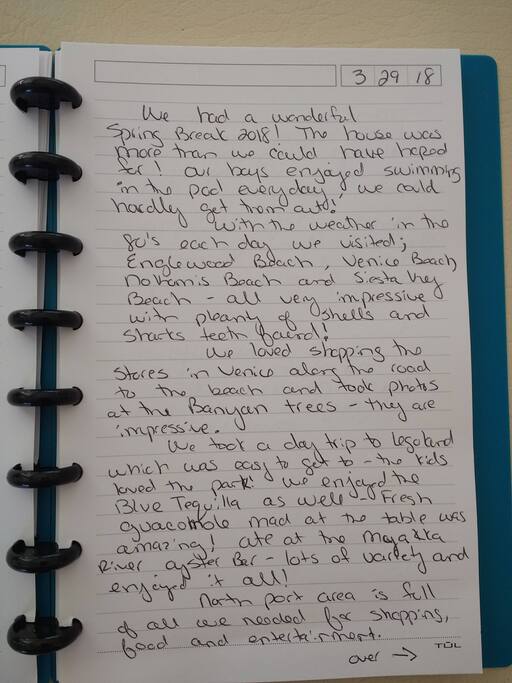 3 29 18
We had a wonderful
Spring Break 2018! The house was
more than we could have hoped
for! Our boys enjoyed swimming
in the pool everyday, we could
hardly get them out!
With the weather in the
80's each day we visited;
Englewood Beach, Venice Beach,
Nokomis Beach and Siesta Key
Beach - all very impressive
with pleanty of shells and
sharks teeth found!
We loved shopping the
stores in Venice along the road
to the beach and took photos
at the Banyan trees - they are
impressive.
We took a day trip to legoland
which was easy to get to - the kids
loved the park! We enjoyed the
Blue Tequilla as well. Fresh
guacomole mad at the table was
amazing! ate at the
River oyster Bar - lots of variety and
enjoyed it all!
North port area is full
of all we needed for shopping,
food and entertainment.
over →
TUL